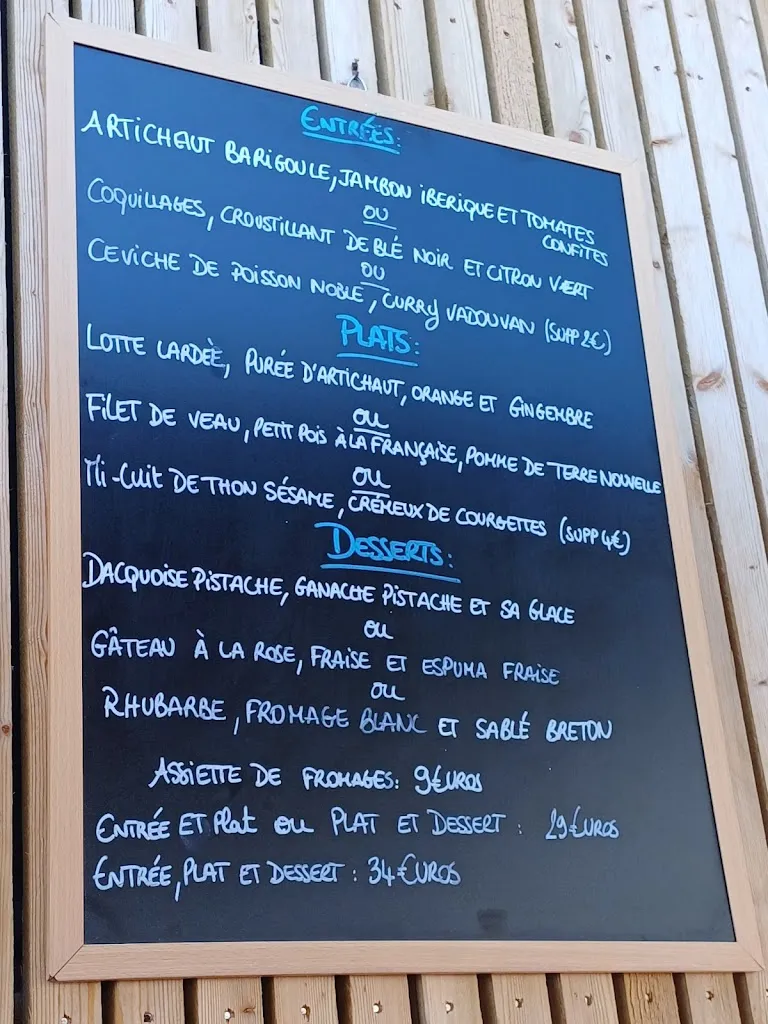 ENTRÉES:
ARTICHAUT BARIGOULE, JAMBON IBERIQUE ET TOMATES
CONFITES
OU
COQUILLAGES, CROUSTILLANT DE BLÉ NOIR ET CITRON VERT
OU
CEVICHE DE POISSON NOBLE, CURRY VADOUVAN (SUPP 2€)
PLATS:
LOTTE LARDÈE, PURÉE D'ARTICHAUT, ORANGE ET GINGEMBRE
OU
FILET DE VEAU, PETIT POIS À LA FRANÇAISE, POMME DE TERRE NOUVELLE
OU
MI-CUIT DE THON SÉSAME, CRÉMEUX DE COURGETTES (SUPP 4€)
DESSERTS:
DACQUOISE PISTACHE, GANACHE PISTACHE ET SA GLACE
OU
GÂTEAU À LA ROSE, FRAISE ET ESPUMA FRAISE
OU
RHUBARBE, FROMAGE BLANC ET SABLÉ BRETON
ASSIETTE DE FROMAGES: 9€UROS
ENTRÉE ET Plat OU PLAT ET DESSERT : 29€UROS
ENTRÉE, PLAT ET DESSERT : 34€UROS